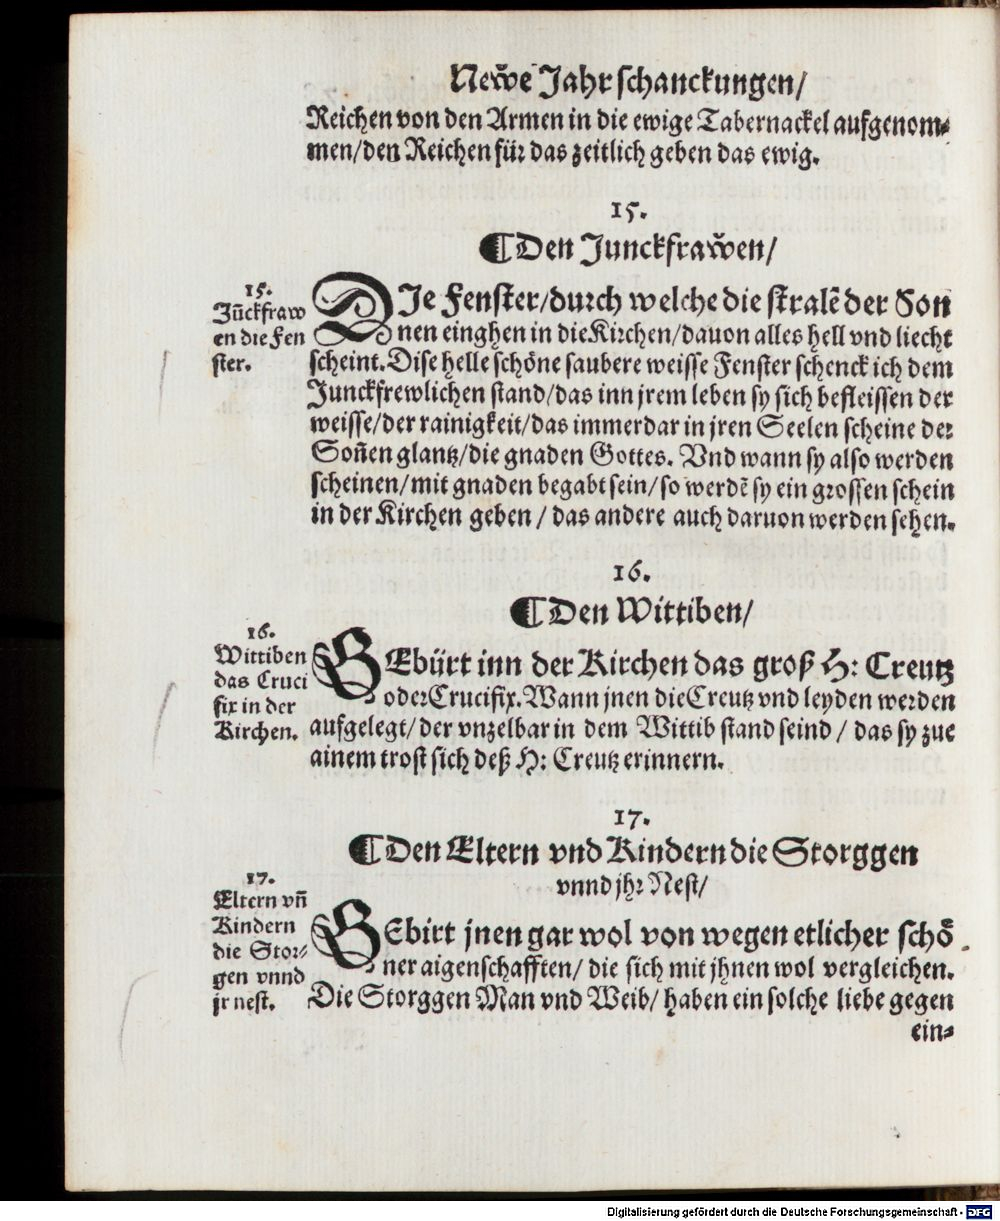 Newe Jahr schanckungen/
Reichen von den Armen in die ewige Tabernackel aufgenom⸗
men/den Reichen für das zeitlich geben das ewig.
15.
¶Den Junckfrawen/
15.
Jūckfraw
en die Fen
ster.
DIe Fenster/durch welche die stralē der Son
nen einghen in die Kirchen/dauon alles hell vnd liecht
scheint. Dise helle schöne saubere weisse Fenster schenck ich dem
Junckfrewlichen stand/das inn jrem leben sy sich befleissen der
weisse/der rainigkeit/das immerdar in jren Seelen scheine der
Soñen glantz/die gnaden Gottes. Vnd wann sy also werden
scheinen/mit gnaden begabt sein/so werdē sy ein grossen schein
in der Kirchen geben / das andere auch daruon werden sehen.
16.
¶Den Wittiben/
16.
Wittiben
das Cruci
fix in der
Kirchen.
GEbürt inn der Kirchen das groß H: Creutz
oder Crucifix. Wann jnen die Creutz vnd leyden werden
aufgelegt/ der vnzelbar in dem Wittib stand seind / das sy zue
ainem trost sich deß H: Creutz erinnern.
17.
¶Den Eltern vnd Kindern die Storggen
vnnd jhr Nest/
17.
Eltern vñ
Kindern
die Stor⸗
gen vnnd
jr nest.
GEbirt jnen gar wol von wegen etlicher schö
ner aigenschafften/ die sich mit jhnen wol vergleichen.
Die Storggen Man vnd Weib/ haben ein solche liebe gegen
ein⸗
Digitalisierung gefördert durch die Deutsche Forschungsgemeinschaft - DFG